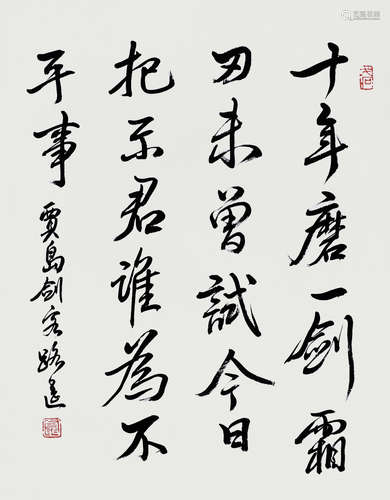 十年磨一劍霜
刃未曾試今日
把示君誰為不
平事
賈島劍客路遥